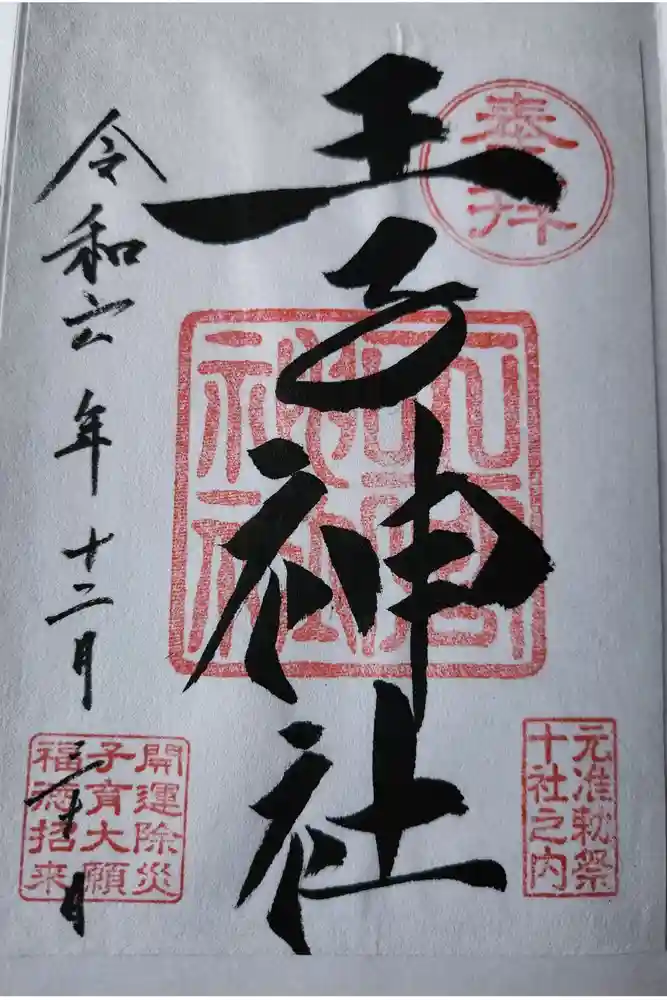 奉拝
元准勅祭
十社之内
王子神社
令和六年十二月三十日
開運除災
子育大願
福徳招来